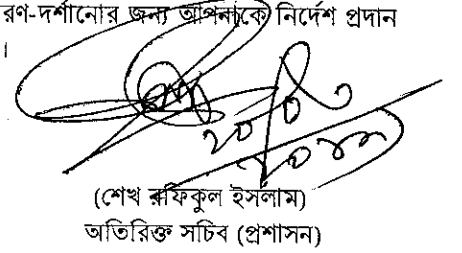 রণ-দর্শানোর জন্য আপনাকে নির্দেশ প্রদান
।
(শেখ রফিকুল ইসলাম)
অতিরিক্ত সচিব (প্রশাসন)